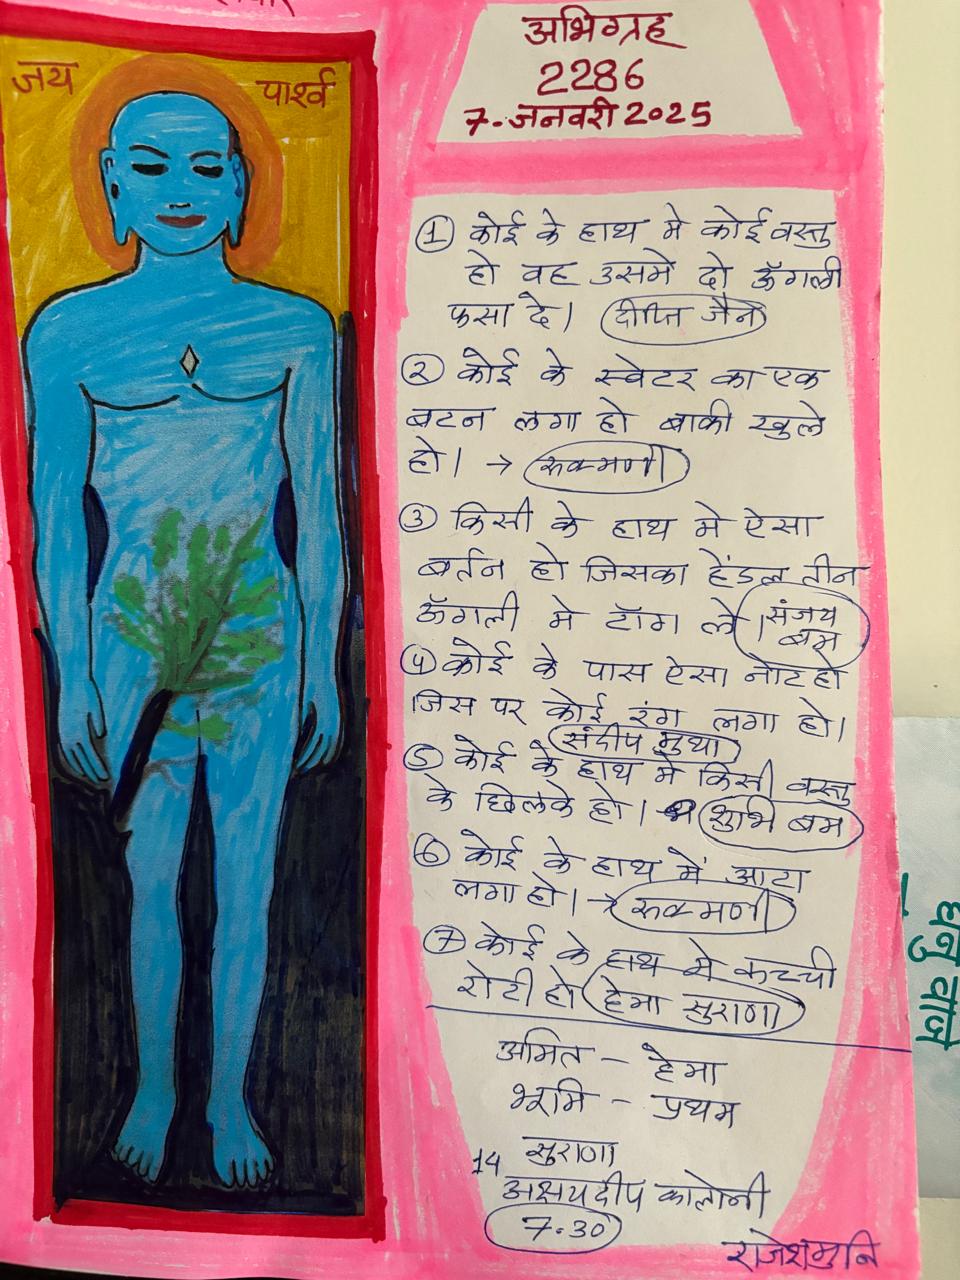 जय पार्श्व
अभिग्रह
2286
7-जनवरी 2025
① कोई के हाथ मे कोई वस्तु
हो वह उसमे दो ऊँगली
फसा दे। दीप्ति जैन
② कोई के स्वेटर का एक
बटन लगा हो बाकी खुले
हो। → रुकमणी
③ किसी के हाथ मे ऐसा
बर्तन हो जिसका हेंडल तीन
ऊँगली मे टॉग ले। संजय
बम
④ कोई के पास ऐसा नोट हो
जिस पर कोई रंग लगा हो।
संदीप मुथा
⑤ कोई के हाथ मे किसी वस्तु
के छिलके हो। शुभि बम
⑥ कोई के हाथ में आटा
लगा हो। → रुकमणी
⑦ कोई के हाथ मे कच्ची
रोटी हो हेमा सुराणा
अमित - हेमा
भूमि - प्रथम
सुराणा
14 अक्षयदीप कालोनी
7.30
राजेशमुनि